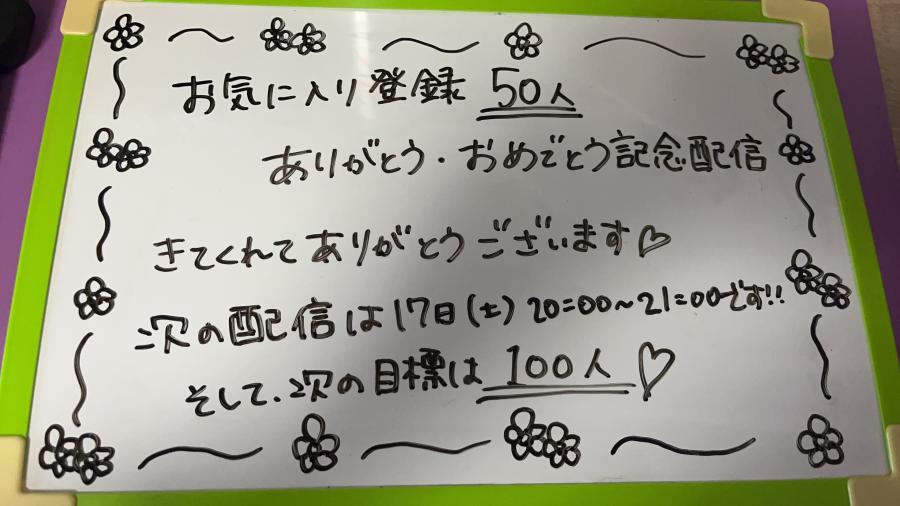 お気に入り登録 50人
ありがとう・おめでとう記念配信
きてくれてありがとうございます♡
次の配信は17日(土) 20:00〜21:00です!!
そして、次の目標は 100人 ♡